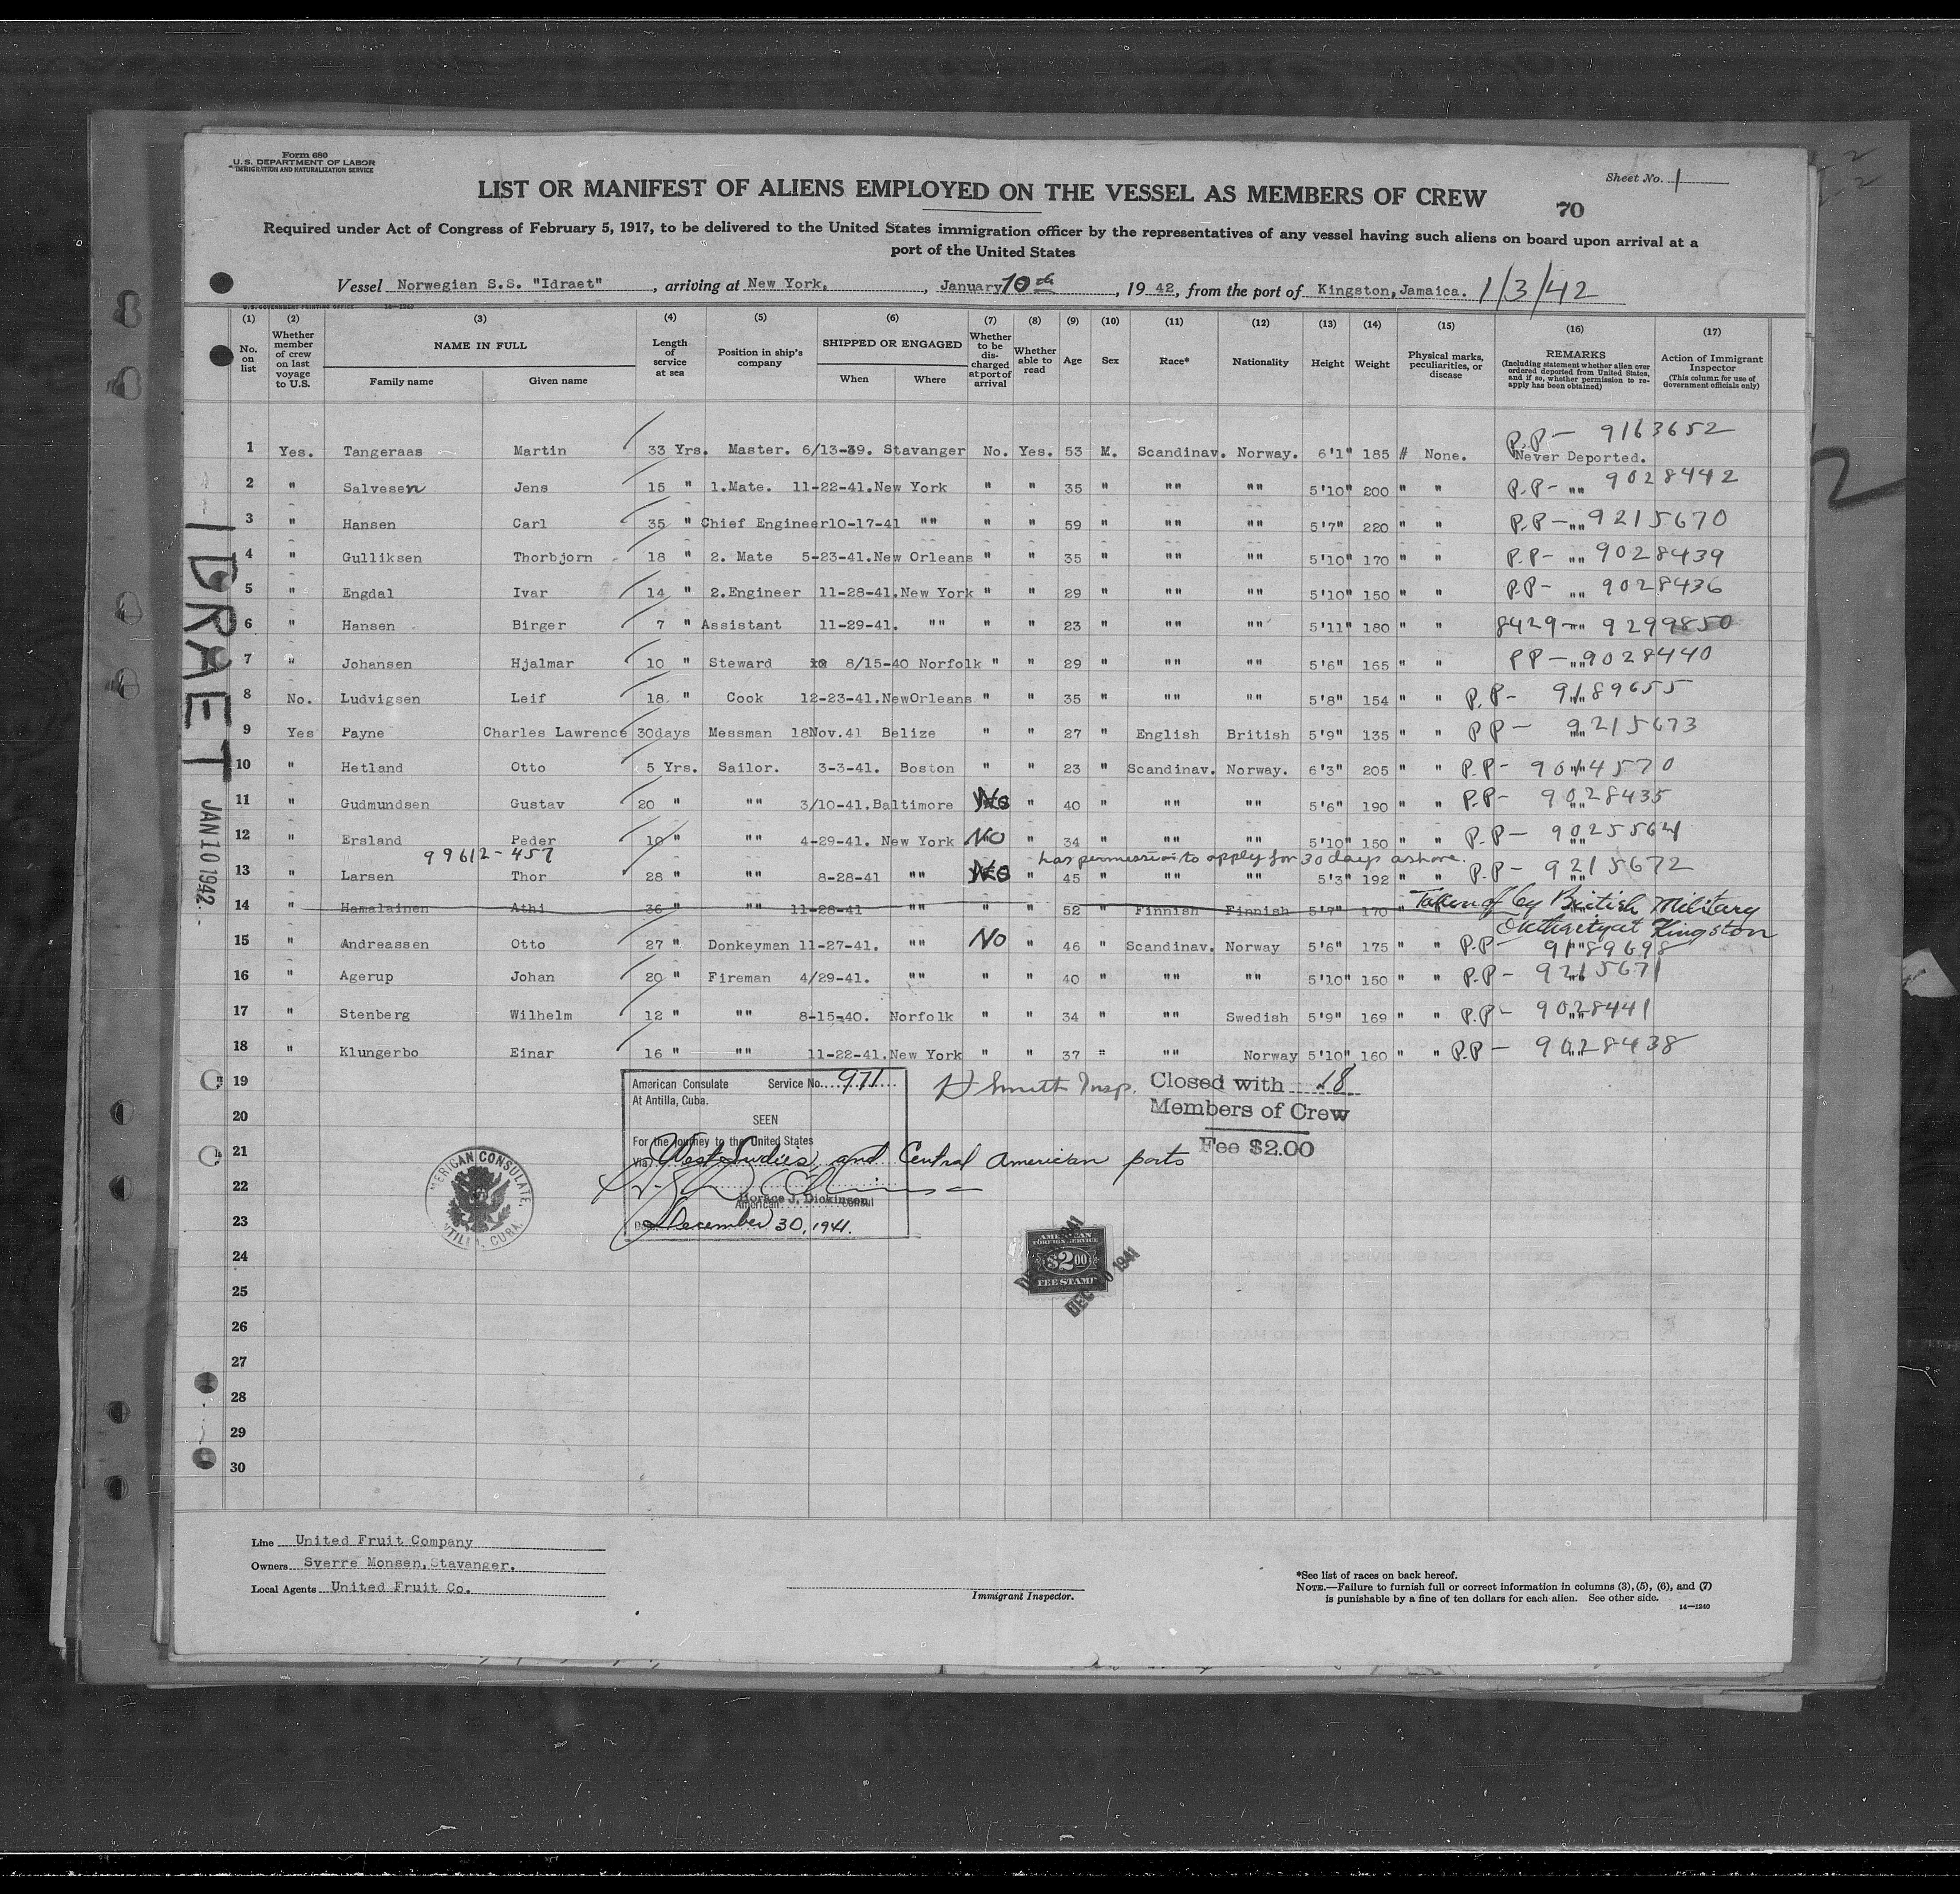 Form 680
U.S. DEPARTMENT OF LABOR
IMMIGRATION AND NATURALIZATION SERVICE
Sheet No. 1
LIST OR MANIFEST OF ALIENS EMPLOYED ON THE VESSEL AS MEMBERS OF CREW
70
Required under Act of Congress of February 5, 1917, to be delivered to the United States immigration officer by the representatives of any vessel having such aliens on board upon arrival at a
port of the United States
Vessel Norwegian S.S. "Idraet", arriving at New York, , January 10th, 19 42, from the port of Kingston, Jamaica. 1/3/42
U.S. GOVERNMENT PRINTING OFFICE
(1) (2) (3) (4) (5) (6) (7) (8) (9) (10) (11) (12) (13) (14) (15) (16) (17)
No. on list
Whether member of crew on last voyage to U.S.
NAME IN FULL
Family name
Given name
Length of service at sea
Position in ship's company
SHIPPED OR ENGAGED
When
Where
Whether to be discharged at port of arrival
Whether able to read
Age
Sex
Race*
Nationality
Height
Weight
Physical marks, peculiarities, or disease
REMARKS
(Including statement whether alien ever ordered deported from United States, and if so, whether permission to reapply has been obtained)
Action of Immigrant Inspector
(This column for use of Government officials only)
1 Yes. Tangeraas Martin 33 Yrs. Master. 6/13-39. Stavanger No. Yes. 53 M. Scandinav. Norway. 6'1" 185 # None. P.P- 9163652 Never Deported.
2 " Salvesen Jens 15 " 1.Mate. 11-22-41. New York " " 35 " "" "" 5'10" 200 " " P.P- "" 9028442
3 " Hansen Carl 35 " Chief Engineer 10-17-41 "" " " 59 " "" "" 5'7" 220 " " P.P- "" 9215670
4 " Gulliksen Thorbjorn 18 " 2. Mate 5-23-41. New Orleans " " 35 " "" "" 5'10" 170 " " P.P- "" 9028439
5 " Engdal Ivar 14 " 2.Engineer 11-28-41. New York " " 29 " "" "" 5'10" 150 " " P.P- "" 9028436
6 " Hansen Birger 7 " Assistant 11-29-41. "" " " 23 " "" "" 5'11" 180 " " 8429- "" 9299850
7 " Johansen Hjalmar 10 " Steward 8/15-40 Norfolk " " 29 " "" "" 5'6" 165 " " PP- "" 9028440
8 No. Ludvigsen Leif 18 " Cook 12-23-41. NewOrleans " " 35 " "" "" 5'8" 154 " " P.P- "" 9189655
9 Yes Payne Charles Lawrence 30days Messman 18Nov.41 Belize " " 27 " English British 5'9" 135 " " PP- "" 9215673
10 " Hetland Otto 5 Yrs. Sailor. 3-3-41. Boston " " 23 " Scandinav. Norway. 6'3" 205 " " P.P- "" 9014570
11 " Gudmundsen Gustav 20 " "" 3/10-41. Baltimore " 40 " "" "" 5'6" 190 " " P.P- "" 9028435
12 " Ersland Peder 10 " "" 4-29-41. New York No " 34 " "" "" 5'10" 150 " " P.P- "" 9025564
99612-457 has permission to apply for 30 days ashore.
13 " Larsen Thor 28 " "" 8-28-41 "" " 45 " "" "" 5'3" 192 " " P.P- "" 9215672
14 " Hamalainen Athi 36 " "" 11-28-41 "" " " 52 " Finnish Finnish 5'7" 170 " Taken of by British Military
Authority at Kingston
15 " Andreassen Otto 27 " Donkeyman 11-27-41. "" No " 46 " Scandinav. Norway 5'6" 175 " " P.P- "" 9189698
16 " Agerup Johan 20 " Fireman 4/29-41. "" " " 40 " "" "" 5'10" 150 " " P.P- "" 9215671
17 " Stenberg Wilhelm 12 " "" 8-15-40. Norfolk " " 34 " "" Swedish 5'9" 169 " " P.P- "" 9028441
18 " Klungerbo Einar 16 " "" 11-22-41. New York " " 37 " "" Norway 5'10" 160 " " P.P- "" 9028438
19
20
21
22
23
24
25
26
27
28
29
30
IDRAET
JAN 10 1942
American Consulate Service No. 971
At Antilla, Cuba.
SEEN
For the journey to the United States
Via West Indies and Central American ports
Horace J. Dickinson
American Consul
Date December 30, 1941.
H Smith Insp.
Closed with 18
Members of Crew
Fee $2.00
AMERICAN CONSULATE,
ANTILLA, CUBA.
AMERICAN
FOREIGN SERVICE
$2.00
FEE STAMP
DEC 30 1941
Line United Fruit Company
Owners Sverre Monsen, Stavanger.
Local Agents United Fruit Co.
Immigrant Inspector.
*See list of races on back hereof.
NOTE.—Failure to furnish full or correct information in columns (3), (5), (6), and (7)
is punishable by a fine of ten dollars for each alien. See other side.
14—1240